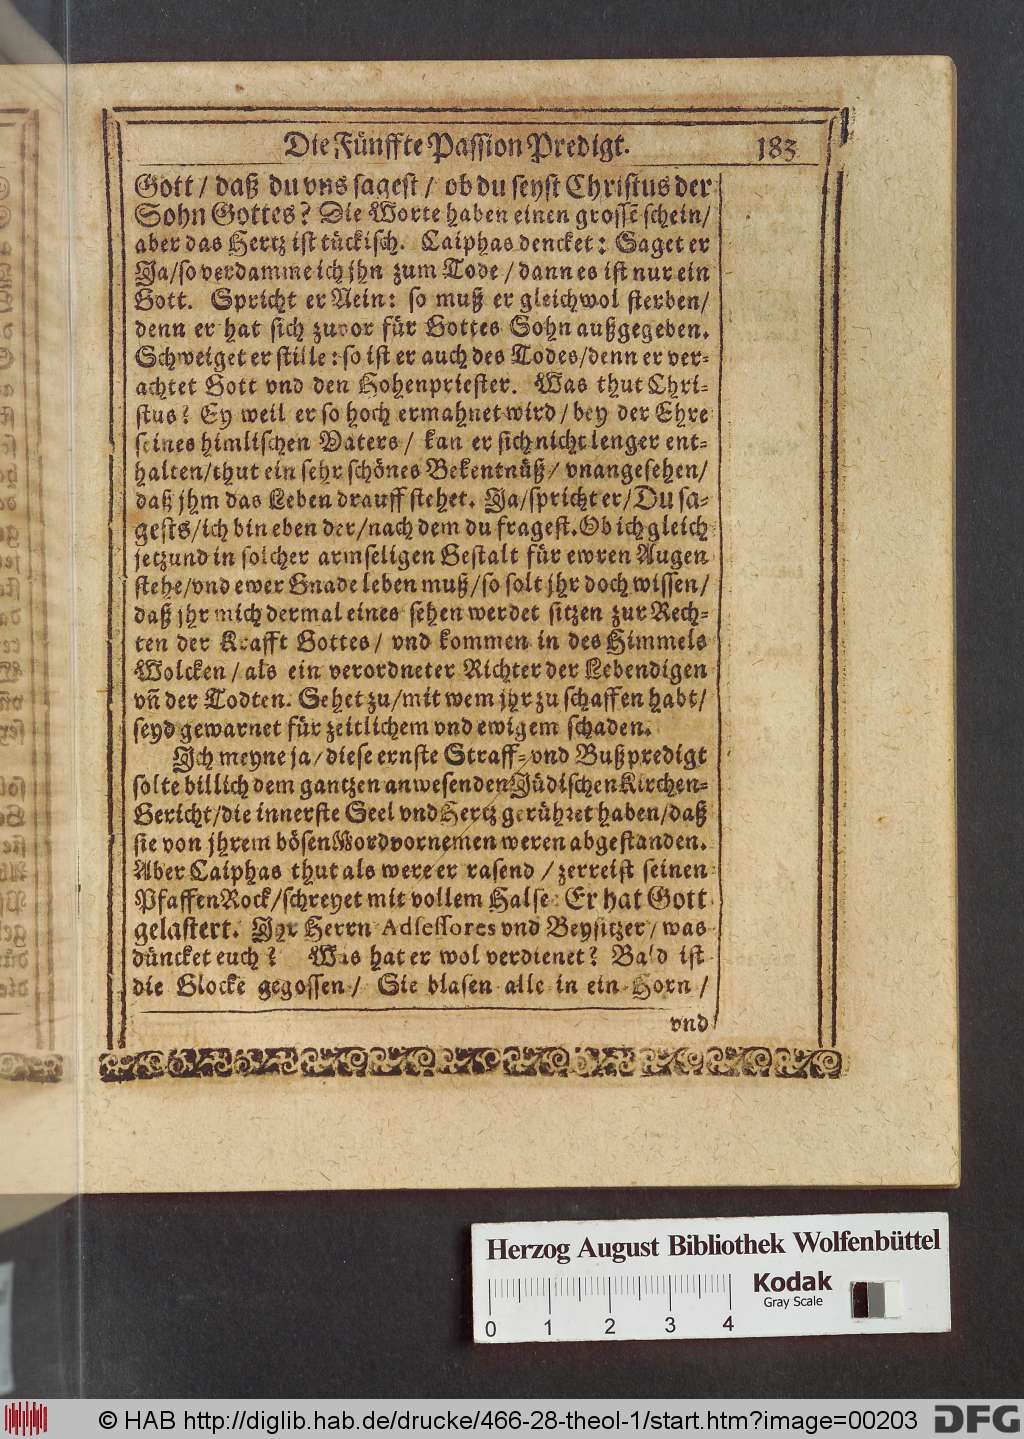 Die Fünffte Passion Predigt. 183
Gott / daß du vns sagest / ob du seyst Christus der
Sohn Gottes? Die Worte haben einen grossē schein/
aber das Hertz ist tückisch. Caiphas dencket: Saget er
Ja/so verdamme ich jhn zum Tode / dann es ist nur ein
Gott. Spricht er Nein: so muß er gleichwol sterben/
denn er hat sich zuvor für Gottes Sohn außgegeben.
Schweiget er stille: so ist er auch des Todes/denn er ver-
achtet Gott vnd den Hohenpriester. Was thut Chri-
stus? Ey weil er so hoch ermahnet wird / bey der Ehre
seines himlischen Vaters / kan er sich nicht lenger ent-
halten/thut ein sehr schönes Bekentnüß/ vnangesehen/
daß jhm das Leben drauff stehet. Ja/spricht er/Du sa-
gests/ich bin eben der/nach dem du fragest. Ob ich gleich
jetzund in solcher armseligen Gestalt für ewren Augen
stehe/vnd ewer Gnade leben muß/so solt jhr doch wissen/
daß jhr mich dermal eines sehen werdet sitzen zur Rech-
ten der Krafft Gottes / vnd kommen in des Himmels
Wolcken / als ein verordneter Richter der Lebendigen
vñ der Todten. Sehet zu/mit wem jhr zu schaffen habt/
seyd gewarnet für zeitlichem vnd ewigem schaden.
Ich meyne ja / diese ernste Straff- vnd Bußpredigt
solte billich dem gantzen anwesenden Jüdischen Kirchen-
Gericht/die innerste Seel vnd Hertz gerühret haben/daß
sie von jhrem bösen Mordvornemen weren abgestanden.
Aber Caiphas thut als were er rasend / zerreist seinen
Pfaffen Rock/schreyet mit vollem Halse: Er hat Gott
gelästert. Ihr Herrn Adsessores vnd Beysitzer / was
düncket euch? Was hat er wol verdienet? Bald ist
die Glocke gegossen / Sie blasen alle in ein Horn /
vnd
Herzog August Bibliothek Wolfenbüttel
Kodak
Gray Scale
0 1 2 3 4
© HAB http://diglib.hab.de/drucke/466-28-theol-1/start.htm?image=00203
DFG